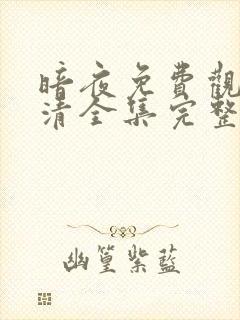 暗夜免費觀
清全集完整
幽篁紫藍